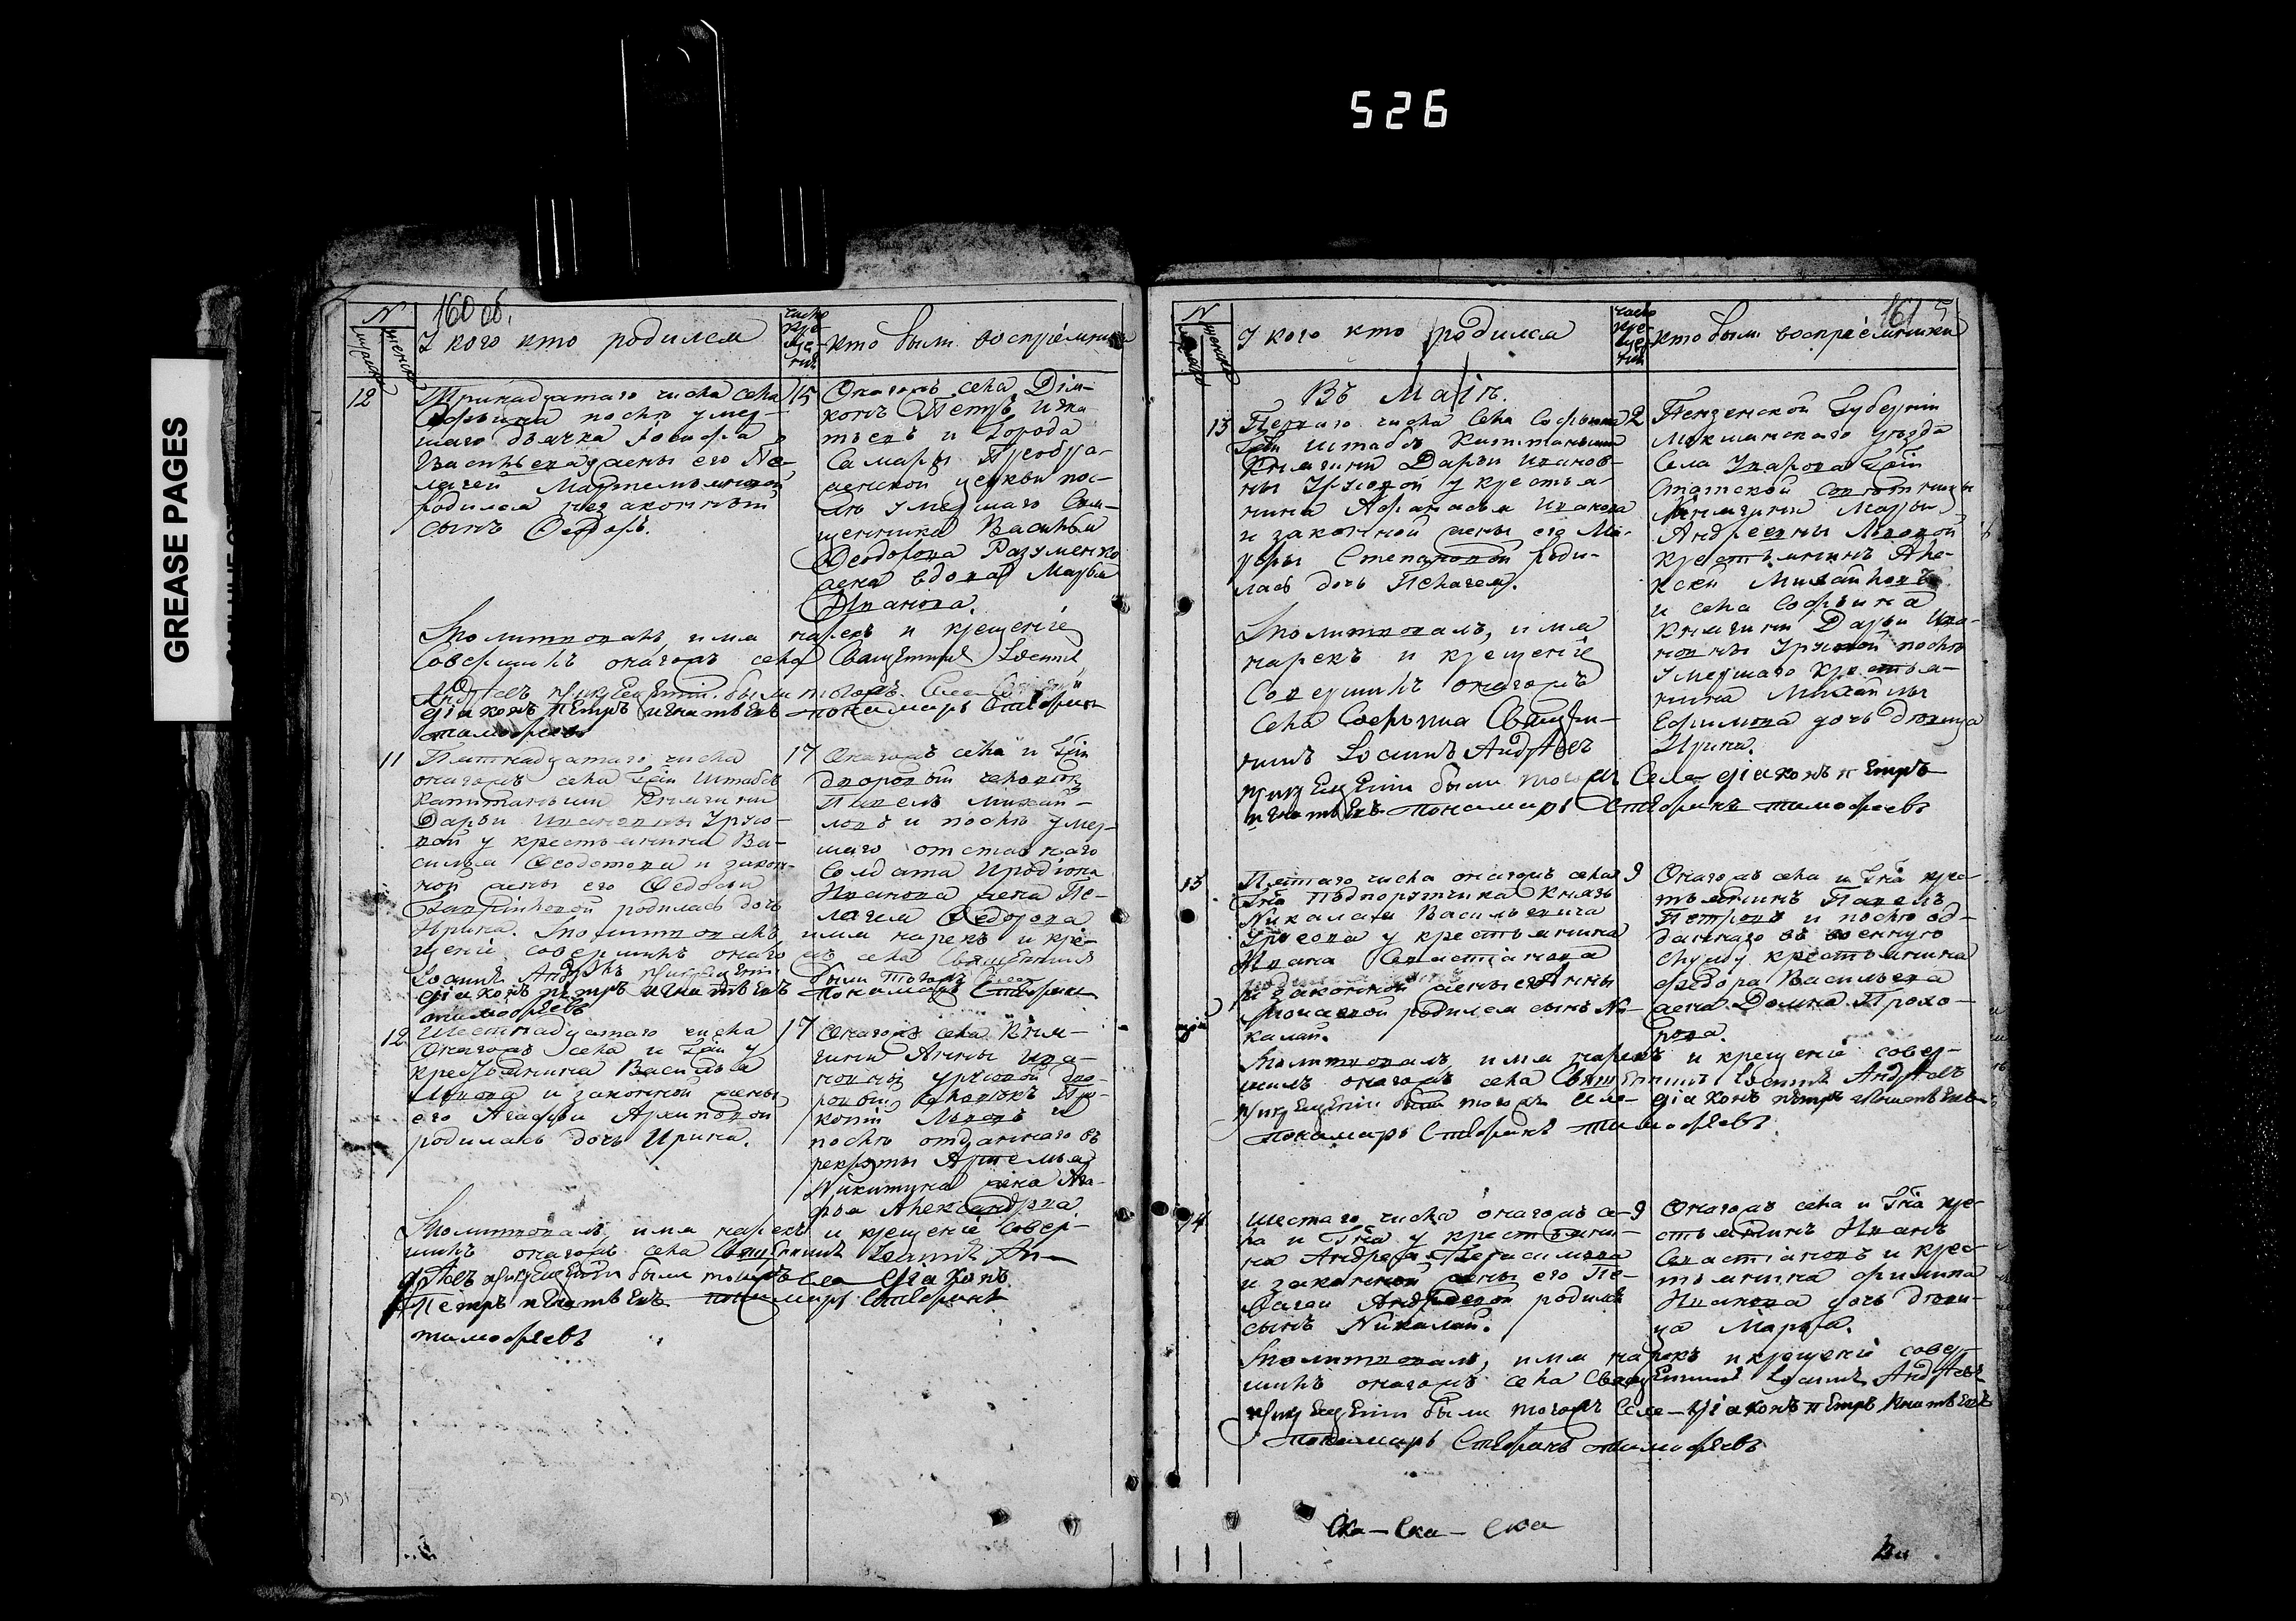 526
GREASE PAGES
160 об.
N
мужеска
женска
У кого кто родился
число крещения
кто были воспріемники
12
Тринадцатаго числа села
Софьина послѣ умер-
шаго дьячка Іосифа
Васильева жены его Пе-
лагеи
родился незаконный
сынъ Ѳедоръ.
15
Онагожъ села Діа-
конъ Петръ Игна-
тьевъ и города
Самары Преобра-
женской церкви пос-
лѣ умершаго Свя-
щенника Василья
Ѳеодорова
жена вдова Марья
Иванова.
Молитвовалъ, имя нарекъ и крещеніе
совершилъ онагожъ села Священникъ Іоаннъ
Андреевъ при крещеніи были тогожъ села
діаконъ Петръ Игнатьевъ пономарь Стефанъ
Тимофеевъ
11
Пятнадцатаго числа
онагожъ села Гжи Штабсъ
Капитанши Княгини
Дарьи Ивановны Урусо-
вой у крестьянина Ва-
силья Ѳеодотова и закон-
ной жены его Ѳедосьи
родилась дочь
Ирина. Молитвовалъ имя нарекъ и кре-
щеніе совершилъ онагожъ села Священникъ
Іоаннъ Андреевъ при крещеніи были тогожъ села
діаконъ Петръ Игнатьевъ Пономарь Стефанъ
Тимофеевъ
17
Онагожъ села и Гжи
дворовый человѣкъ
Павелъ Михай-
ловъ и послѣ умер-
шаго отставнаго
Солдата Иродіона
Иванова жена Пе-
лагея Ѳедорова
12
Шестнадцатаго числа
Онагожъ села и Гжи у
крестьянина Василья
и законной жены
его Агафьи Архиповой
родилась дочь Ирина.
17
Онагожъ села Кня-
гини Анны Ива-
новны Урусовой дво-
ровый человѣкъ Про-
копій Львовъ и
послѣ отданнаго въ
рекруты Артемья
Никитина жена
Александрова
Молитвовалъ, имя нарекъ и крещеніе совер-
шилъ онагожъ села Священникъ Іоаннъ Ан-
дреевъ при крещеніи были тогожъ села діаконъ
Петръ Игнатьевъ пономарь Стефанъ
Тимофеевъ
161
5
N
мужеска
женска
У кого кто родился
число крещения
кто были воспріемники
Въ Маіѣ.
13
Перваго числа Села Софьина
Гжи Штабсъ Капитанши
Княгини Дарьи Иванов-
ны Урусовой у крестья-
нина Афанасья Иванова
и законной жены его Ма-
вры Степановой роди-
лась дочь Пелагея.
2
Пензенской Губерніи
Мокшанскаго уѣзда
Села Уварова Гжи
Статской Совѣтницы
Княгини Марьи
Андреевны Львовой
крестьянинъ Але-
ксей Михайловъ
и села Софьина
Княгини Дарьи Ива-
новны Урусовой послѣ
умершаго крестья-
нина Михайлы
Ефимова дочь дѣвица
Ирина.
Молитвовалъ, имя
нарекъ и крещеніе
Совершилъ онагожъ
Села Софьина Священ-
никъ Іоаннъ Андреевъ
при крещеніи были тогожъ Села діаконъ Петръ
Игнатьевъ пономарь Стефанъ Тимофеевъ
13
Пятаго числа онагожъ села
Гна Подпоручика Князь
Николая Васильевича
Урусова у крестьянина
Ивана Севастіанова
и законной жены его Анны
родился сынъ Ни-
колай.
9
Онагожъ села и Гна кре-
стьянинъ Павелъ
Петровъ и послѣ от-
даннаго въ военную
службу крестьянина
Ѳедора Васильева
жена Домна Прохо-
рова.
Молитвовалъ имя нарекъ и крещеніе совер-
шилъ онагожъ села Священникъ Іоаннъ Андреевъ
при крещеніи были тогожъ села діаконъ Петръ Игнатьевъ
пономарь Стефанъ Тимофеевъ
14
Шестаго числа онагожъ се-
ла и Гна у крестьяни-
на Андрея Герасимова
и законной жены его Пе-
лагеи Андреевой родился
сынъ Николай.
9
Онагожъ села и Гна кре-
стьянинъ Иванъ
Севастіановъ и крес-
тьянина Филипа
Иванова дочь дѣви-
ца Марья.
Молитвовалъ, имя нарекъ и крещеніе совер-
шилъ онагожъ села Священникъ Іоаннъ Андреевъ
при крещеніи были тогожъ Села діаконъ Петръ Игнатьевъ
пономарь Стефанъ Тимофеевъ